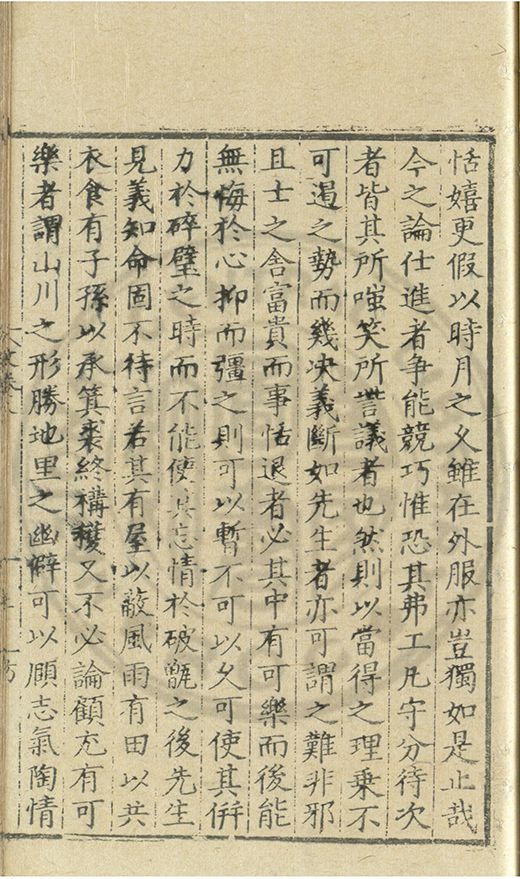 恬嬉更假以時月之久雖在外服亦豈獨如是止哉
今之論仕進者争能競巧惟恐其弗工凡守分待次
者皆其所嗤笑所訾議者也然則以當得之理乗不
可遏之勢而幾决義斷如先生者亦可謂之難非邪
且士之舎富貴而事恬退者必其中有可樂而後能
無悔於心抑而彊之則可以暫不可以久可使其併
力於碎璧之時而不能使其忘情於破甑之後先生
見義知命固不待言若其有屋以蔽風雨有田以共
衣食有子孫以承箕裘終構穫又不必論顧充有可
樂者謂山川之形勝地里之幽僻可以頤志氣陶情